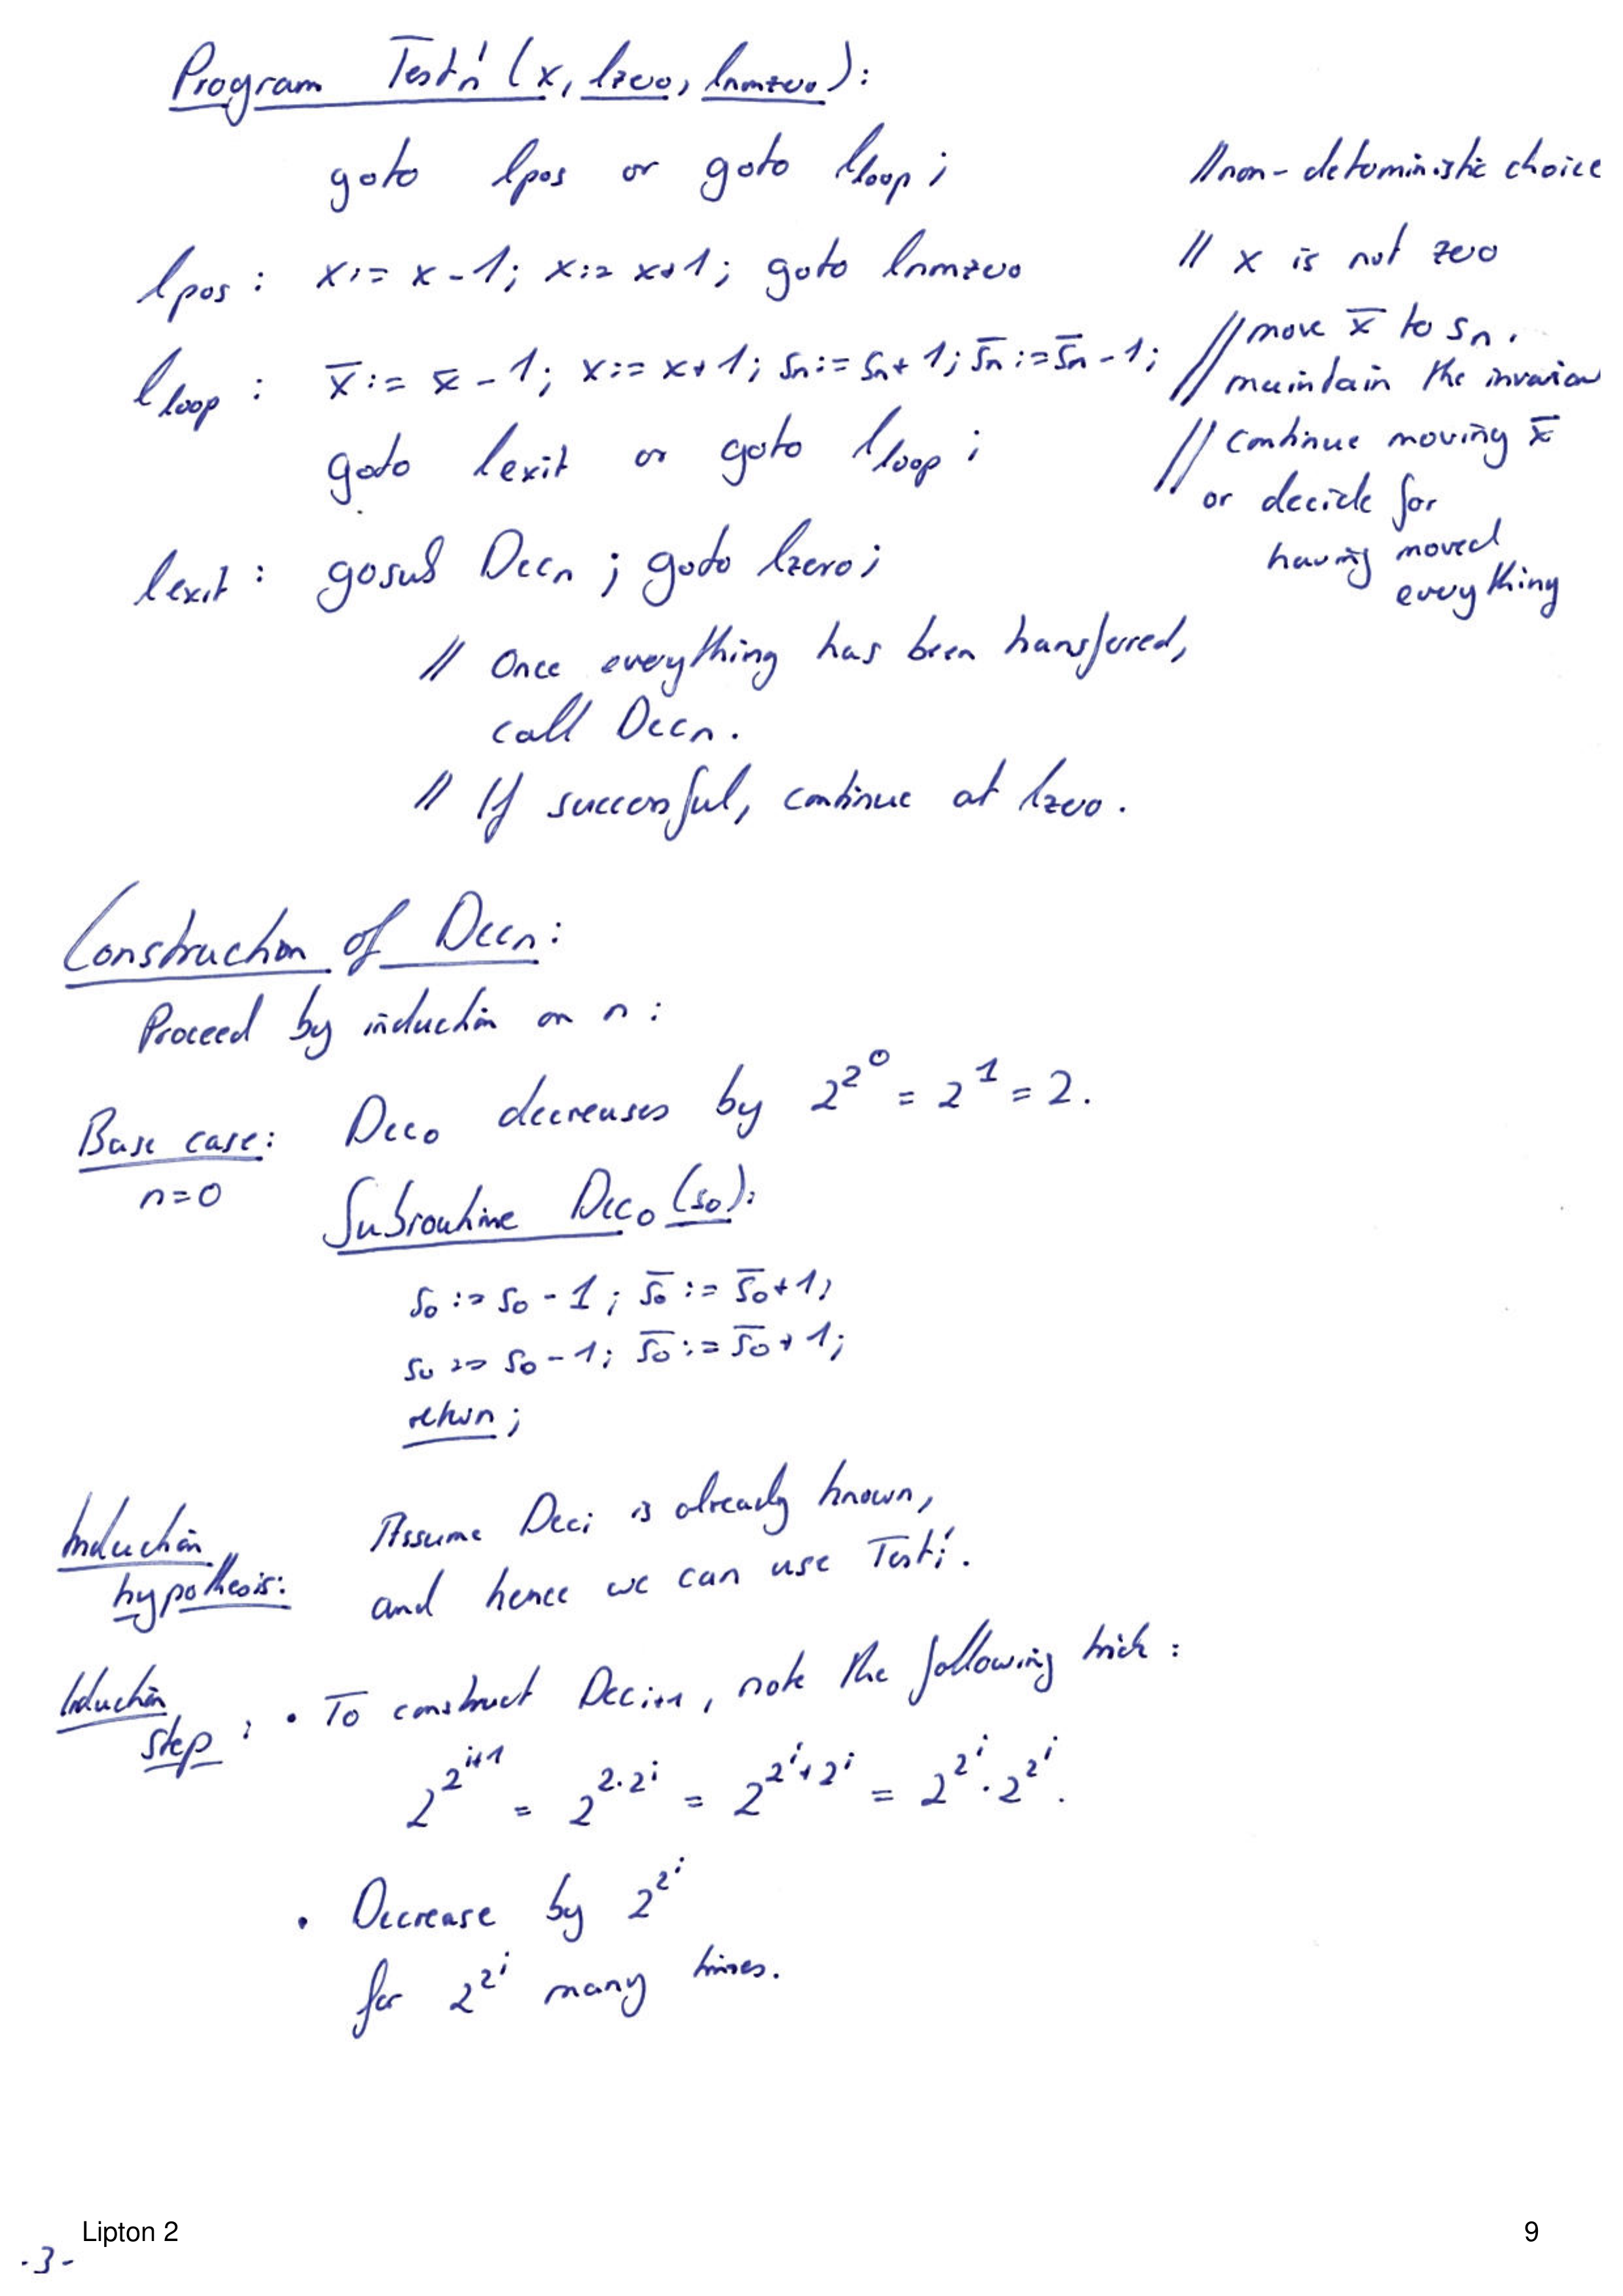 Program Testn' (x, lzero, lnonzero):
goto lpos or goto lloop; //non-deterministic choice
lpos: x:= x-1; x:= x+1; goto lnonzero // x is not zero
lloop: x̄:= x̄-1; x:= x+1; sn:= sn+1; s̄n:= s̄n-1; //move x̄ to sn.
//maintain the invarian
goto lexit or goto lloop; // continue moving x̄
or decide for
having moved
everything
lexit: gosub Decn; goto lzero;
// Once everything has been transferred,
call Decn.
// If successful, continue at lzero.
Construction of Decn:
Proceed by induction on n:
Base case: Dec0 decreases by 2^2^0 = 2^1 = 2.
n=0
Subroutine Dec0 (s0):
s0:= s0-1; s̄0:= s̄0+1;
s0:= s0-1; s̄0:= s̄0+1;
return;
Induction hypothesis: Assume Deci is already known,
and hence we can use Testi'.
Induction step: • To construct Deci+1, note the following trick:
2^2^(i+1) = 2^(2·2^i) = 2^(2^i+2^i) = 2^2^i · 2^2^i.
• Decrease by 2^2^i
for 2^2^i many times.
Lipton 2 9
-3-